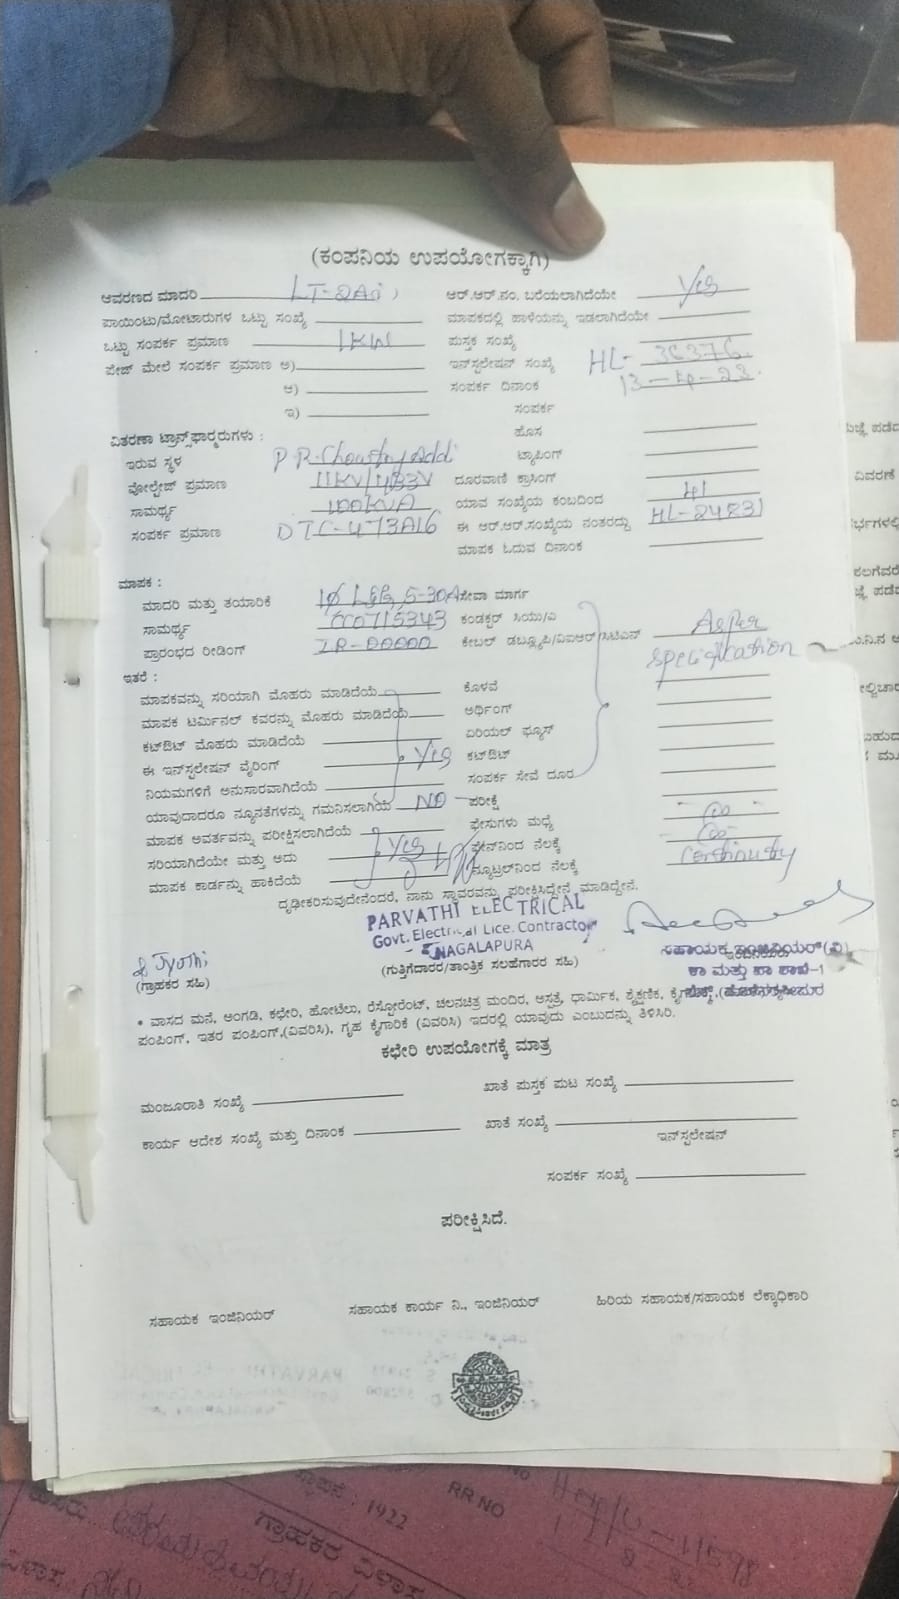 (ಕಂಪನಿಯ ಉಪಯೋಗಕ್ಕಾಗಿ)
ಆವರಣದ ಮಾದರಿ LT-2Ai ಆರ್.ಆರ್.ನಂ. ಬರೆಯಲಾಗಿದೆಯೇ Yes
ಪಾಯಿಂಟು/ಮೋಟಾರುಗಳ ಒಟ್ಟು ಸಂಖ್ಯೆ ಮಾಪಕದಲ್ಲಿ ಹಾಳೆಯನ್ನು ಇಡಲಾಗಿದೆಯೇ
ಒಟ್ಟು ಸಂಪರ್ಕ ಪ್ರಮಾಣ 1KW ಪುಸ್ತಕ ಸಂಖ್ಯೆ
ಪೇಜ್ ಮೇಲೆ ಸಂಪರ್ಕ ಪ್ರಮಾಣ ಅ) ಇನ್‌ಸ್ಟಲೇಷನ್ ಸಂಖ್ಯೆ HL- 36376
ಆ) ಸಂಪರ್ಕ ದಿನಾಂಕ
ಇ) ಸಂಪರ್ಕ
ವಿತರಣಾ ಟ್ರಾನ್ಸ್‌ಫಾರ್ಮರುಗಳು : ಹೊಸ
ಇರುವ ಸ್ಥಳ ಟ್ಯಾಪಿಂಗ್
ವೋಲ್ಟೇಜ್ ಪ್ರಮಾಣ ದೂರವಾಣಿ ಕ್ರಾಸಿಂಗ್
ಸಾಮರ್ಥ್ಯ 100KVA ಯಾವ ಸಂಖ್ಯೆಯ ಕಂಬದಿಂದ 41
ಸಂಪರ್ಕ ಪ್ರಮಾಣ DTC-473A16 ಈ ಆರ್.ಆರ್.ಸಂಖ್ಯೆಯ ನಂತರದ್ದು HL-24231
ಮಾಪಕ ಓದುವ ದಿನಾಂಕ
ಮಾಪಕ :
ಮಾದರಿ ಮತ್ತು ತಯಾರಿಕೆ 5-30A ಸೇವಾ ಮಾರ್ಗ
ಸಾಮರ್ಥ್ಯ 000715343 ಕಂಡಕ್ಟರ್ ಸಿಯು/ಎ
ಪ್ರಾರಂಭದ ರೀಡಿಂಗ್ IR-00000 ಕೇಬಲ್ ಡಬ್ಲ್ಯೂಪಿ/ವಿಐಆರ್/ಸಿಟಿಎಸ್ As per
specification
ಇತರೆ :
ಮಾಪಕವನ್ನು ಸರಿಯಾಗಿ ಮೊಹರು ಮಾಡಿದೆಯೆ ಕೊಳವೆ
ಮಾಪಕ ಟರ್ಮಿನಲ್ ಕವರನ್ನು ಮೊಹರು ಮಾಡಿದೆಯೆ ಅರ್ಥಿಂಗ್
ಕಟ್‌ಔಟ್ ಮೊಹರು ಮಾಡಿದೆಯೆ ಏರಿಯಲ್ ಫ್ಯೂಸ್
ಈ ಇನ್‌ಸ್ಟಲೇಷನ್ ವೈರಿಂಗ್ Yes ಕಟ್‌ಔಟ್
ನಿಯಮಗಳಿಗೆ ಅನುಸಾರವಾಗಿದೆಯೆ ಸಂಪರ್ಕ ಸೇವೆ ದೂರ
ಯಾವುದಾದರೂ ನ್ಯೂನತೆಗಳನ್ನು ಗಮನಿಸಲಾಗಿಯೆ NO ಪರೀಕ್ಷೆ
ಮಾಪಕ ಅವರ್ತವನ್ನು ಪರೀಕ್ಷಿಸಲಾಗಿದೆಯೆ ಫೇಸುಗಳು ಮಧ್ಯೆ
ಸರಿಯಾಗಿದೆಯೇ ಮತ್ತು ಅದು Yes ಫೇಸ್‌ನಿಂದ ನೆಲಕ್ಕೆ
ಮಾಪಕ ಕಾರ್ಡನ್ನು ಹಾಕಿದೆಯೆ ನ್ಯೂಟ್ರಲ್‌ನಿಂದ ನೆಲಕ್ಕೆ Continuity
ದೃಢೀಕರಿಸುವುದೇನೆಂದರೆ, ನಾನು ಸ್ಥಾವರವನ್ನು ಪರೀಕ್ಷಿಸಿದ್ದೇನೆ ಮಾಡಿದ್ದೇನೆ.
PARVATHI ELECTRICAL
Govt. Electrical Lice. Contractor
NAGALAPURA
ಸಹಾಯಕ ಇಂಜಿನಿಯರ್(ವಿ)
ಕಾ ಮತ್ತು ಪಾ ಶಾಖೆ-1
Jyothi
(ಗ್ರಾಹಕರ ಸಹಿ) (ಗುತ್ತಿಗೆದಾರರ/ತಾಂತ್ರಿಕ ಸಲಹೆಗಾರರ ಸಹಿ)
* ವಾಸದ ಮನೆ, ಅಂಗಡಿ, ಕಛೇರಿ, ಹೋಟೆಲು, ರೆಸ್ಟೋರೆಂಟ್, ಚಲನಚಿತ್ರ ಮಂದಿರ, ಆಸ್ಪತ್ರೆ, ಧಾರ್ಮಿಕ, ಶೈಕ್ಷಣಿಕ,
ಪಂಪಿಂಗ್, ಇತರ ಪಂಪಿಂಗ್,(ವಿವರಿಸಿ), ಗೃಹ ಕೈಗಾರಿಕೆ (ವಿವರಿಸಿ) ಇದರಲ್ಲಿ ಯಾವುದು ಎಂಬುದನ್ನು ತಿಳಿಸಿರಿ.
ಕಛೇರಿ ಉಪಯೋಗಕ್ಕೆ ಮಾತ್ರ
ಮಂಜೂರಾತಿ ಸಂಖ್ಯೆ ಖಾತೆ ಪುಸ್ತಕ ಪುಟ ಸಂಖ್ಯೆ
ಕಾರ್ಯ ಆದೇಶ ಸಂಖ್ಯೆ ಮತ್ತು ದಿನಾಂಕ ಖಾತೆ ಸಂಖ್ಯೆ
ಇನ್‌ಸ್ಟಲೇಷನ್
ಸಂಪರ್ಕ ಸಂಖ್ಯೆ
ಪರೀಕ್ಷಿಸಿದೆ.
ಸಹಾಯಕ ಇಂಜಿನಿಯರ್ ಸಹಾಯಕ ಕಾರ್ಯ ನಿ., ಇಂಜಿನಿಯರ್ ಹಿರಿಯ ಸಹಾಯಕ/ಸಹಾಯಕ ಲೆಕ್ಕಾಧಿಕಾರಿ
: 1922
RR NO
ಗ್ರಾಹಕರ ವಿಳಾಸ